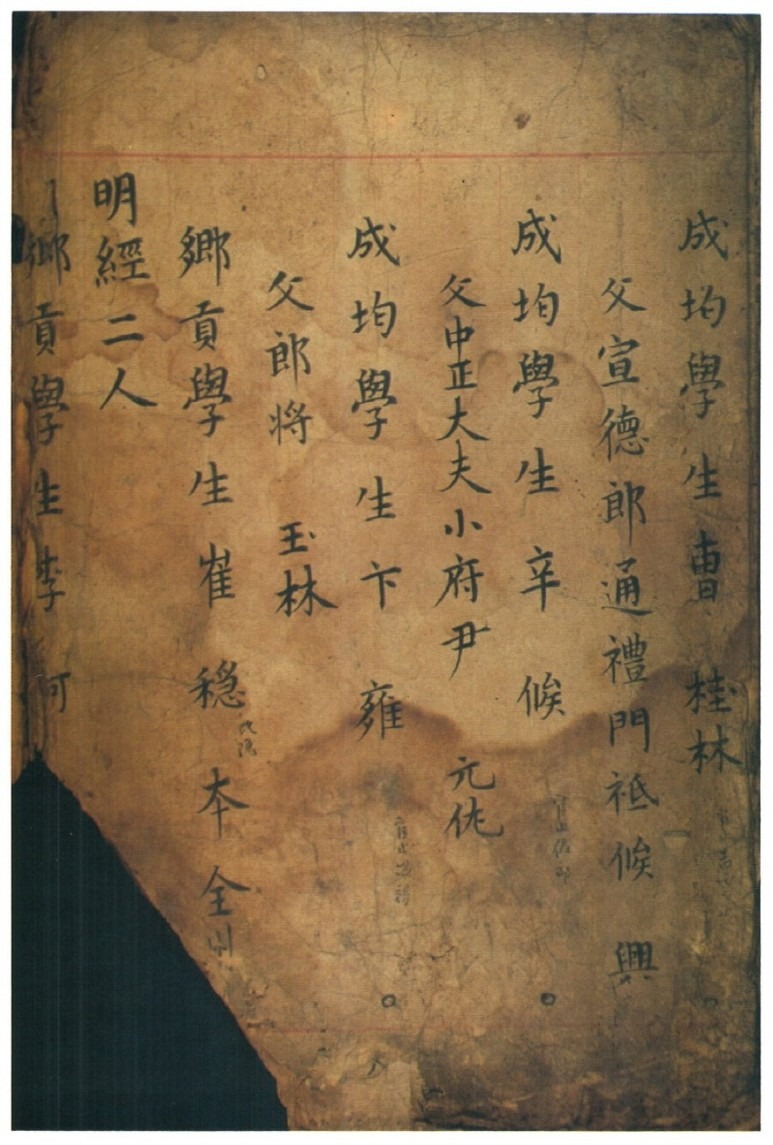 成均學生曺 桂林
父宣德郎通禮門祗候 興
成均學生辛 候
父中正大夫小府尹 元佐
成均學生卞 雍
父郎将 玉林
鄉貢學生崔 穏 夲全州
明經二人
鄉貢學生李